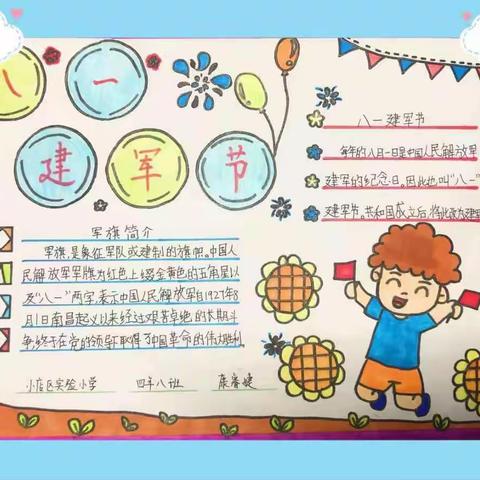 八一
建军节
八一建军节
每年的八月一日是中国人民解放军
建军的纪念日,因此也叫“八一”
建军节。共和国成立后,将此改为建
军旗简介
军旗,是象征军队或建制的旗帜。中国人
民解放军军旗为红色上缀金黄色的五角星以
及“八一”两字,表示中国人民解放军自1927年8
月1日南昌起义以来经过艰苦卓绝的长期斗
争终于在党的领导取得了中国革命的伟大胜利。
小店区实验小学 四年八班